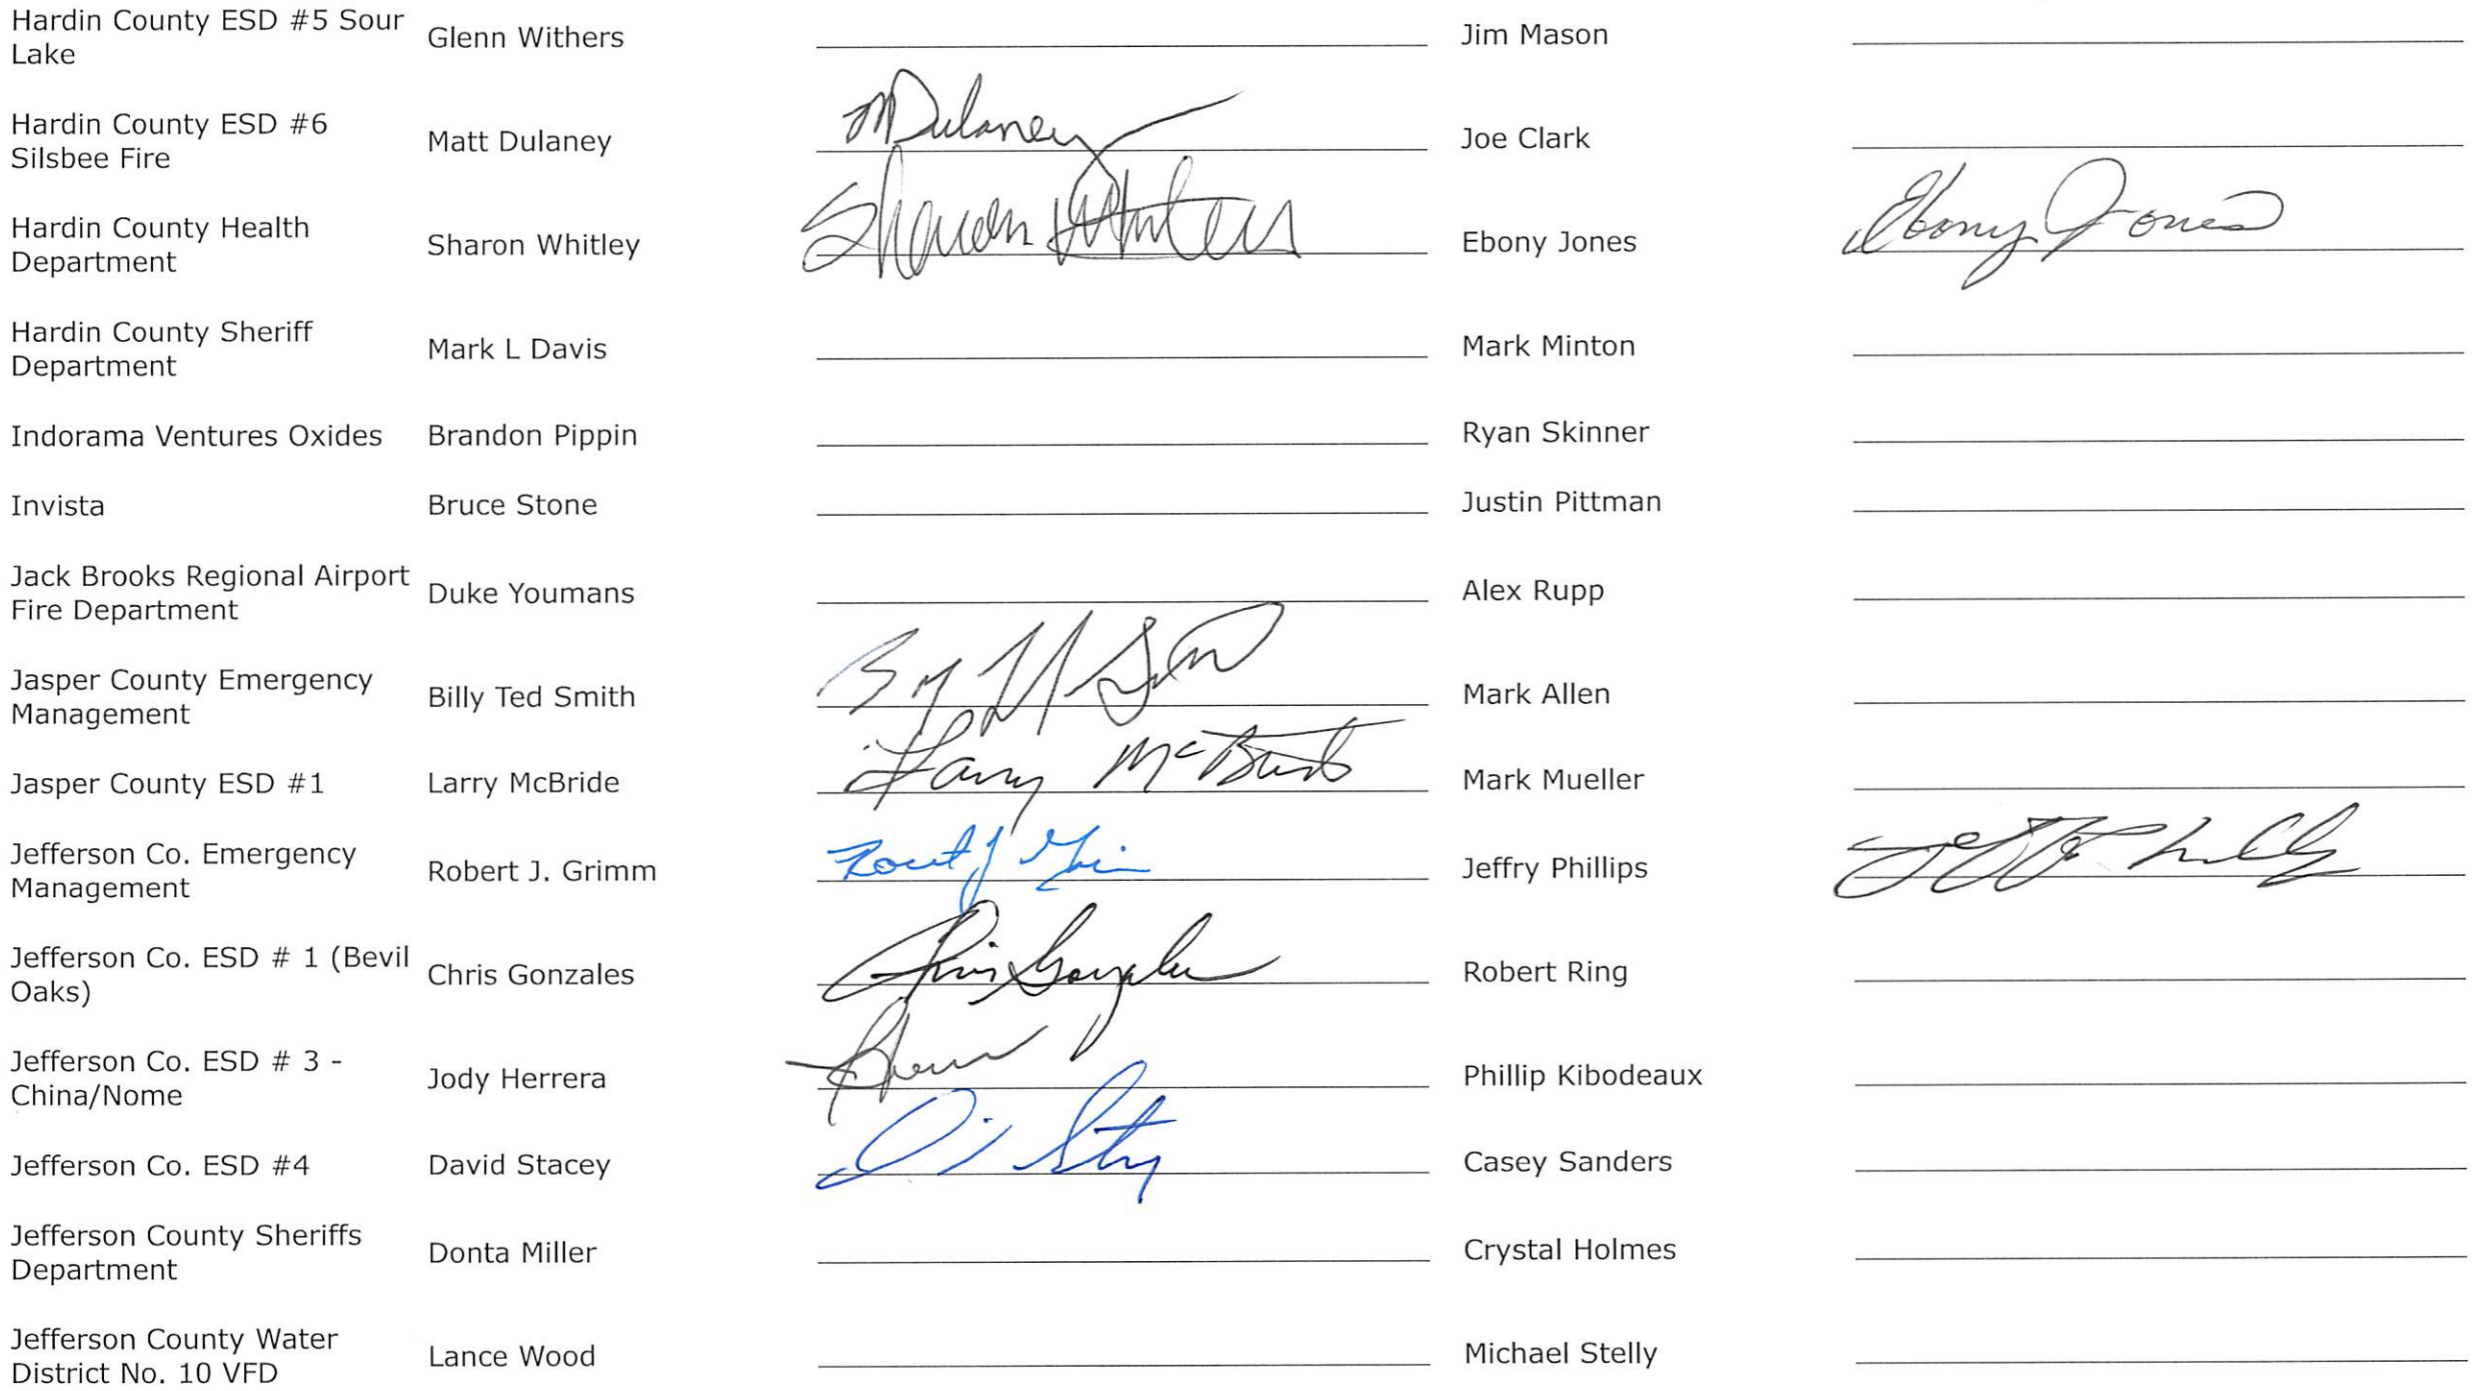 Hardin County ESD #5 Sour
Lake
Glenn Withers
Jim Mason
Hardin County ESD #6
Silsbee Fire
Matt Dulaney
MDulaney
Joe Clark
Hardin County Health
Department
Sharon Whitley
Sharon
Ebony Jones
Ebony Jones
Hardin County Sheriff
Department
Mark L Davis
Mark Minton
Indorama Ventures Oxides
Brandon Pippin
Ryan Skinner
Invista
Bruce Stone
Justin Pittman
Jack Brooks Regional Airport
Fire Department
Duke Youmans
Alex Rupp
Jasper County Emergency
Management
Billy Ted Smith
Mark Allen
Jasper County ESD #1
Larry McBride
Larry McBride
Mark Mueller
Jefferson Co. Emergency
Management
Robert J. Grimm
Jeffry Phillips
Jefferson Co. ESD # 1 (Bevil
Oaks)
Chris Gonzales
Chris Gonzales
Robert Ring
Jefferson Co. ESD # 3 -
China/Nome
Jody Herrera
Phillip Kibodeaux
Jefferson Co. ESD #4
David Stacey
Casey Sanders
Jefferson County Sheriffs
Department
Donta Miller
Crystal Holmes
Jefferson County Water
District No. 10 VFD
Lance Wood
Michael Stelly